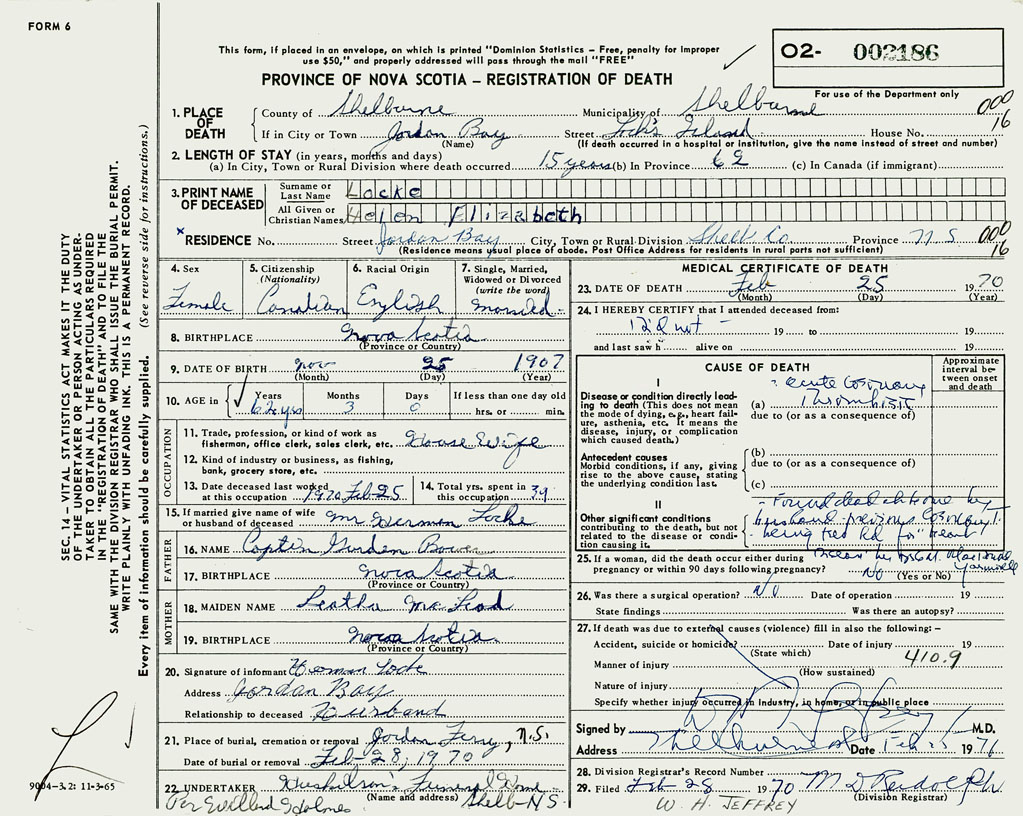 FORM 6
This form, if placed in an envelope, on which is printed "Dominion Statistics – Free, penalty for improper
use $50," and properly addressed will pass through the mail "FREE"
02- 002186
For use of the Department only
PROVINCE OF NOVA SCOTIA – REGISTRATION OF DEATH
SEC. 14 – VITAL STATISTICS ACT MAKES IT THE DUTY
OF THE UNDERTAKER OR PERSON ACTING AS UNDER-
TAKER TO OBTAIN ALL THE PARTICULARS REQUIRED
IN THE "REGISTRATION OF DEATH" AND TO FILE THE
SAME WITH THE DIVISION REGISTRAR WHO SHALL ISSUE THE BURIAL PERMIT.
WRITE PLAINLY WITH UNFADING INK. THIS IS A PERMANENT RECORD.
Every item of information should be carefully supplied. (See reverse side for instructions.)
1. PLACE OF DEATH County of Shelburne Municipality of Shelburne 000
If in City or Town Jordan Bay Street Lock's Island House No. 16
(Name) (If death occurred in a hospital or institution, give the name instead of street and number)
2. LENGTH OF STAY (in years, months and days)
(a) In City, Town or Rural Division where death occurred 15 years (b) In Province 62 (c) In Canada (if immigrant)
3. PRINT NAME OF DECEASED Surname or Last Name Locke
All Given or Christian Names Helen Elizabeth
x RESIDENCE No. Street Jordan Bay City, Town or Rural Division Shelb Co Province N S 000
(Residence means usual place of abode. Post Office Address for residents in rural parts not sufficient) 16
4. Sex 5. Citizenship (Nationality) 6. Racial Origin 7. Single, Married, Widowed or Divorced (write the word)
Female Canadian English Married
8. BIRTHPLACE Nova Scotia
(Province or Country)
9. DATE OF BIRTH Nov 25 1907
(Month) (Day) (Year)
10. AGE in Years Months Days If less than one day old
62 yrs 3 0 hrs. or min.
OCCUPATION
11. Trade, profession, or kind of work as
fisherman, office clerk, sales clerk, etc. House Wife
12. Kind of industry or business, as fishing,
bank, grocery store, etc.
13. Date deceased last worked at this occupation 1970 Feb 25 14. Total yrs. spent in this occupation 39
15. If married give name of wife
or husband of deceased Mr Herman Locke
FATHER
16. NAME Captin Bower
17. BIRTHPLACE Nova Scotia
(Province or Country)
MOTHER
18. MAIDEN NAME Leatha Mc Leod
19. BIRTHPLACE Nova Scotia
(Province or Country)
20. Signature of informant Herman Locke
Address Jordan Bay
Relationship to deceased Husband
21. Place of burial, cremation or removal Jordan Ferry, N.S.
Date of burial or removal Feb 28, 1970
22. UNDERTAKER Funeral Home
(Name and address) Shelb NS
Per Holmes
9004-3.2: 11-3-65
MEDICAL CERTIFICATE OF DEATH
23. DATE OF DEATH Feb 25 1970
(Month) (Day) (Year)
24. I HEREBY CERTIFY that I attended deceased from:
I did not – 19 to 19
and last saw h alive on 19
CAUSE OF DEATH Approximate interval between onset and death
I
Disease or condition directly leading to death (This does not
mean the mode of dying, e.g., heart failure,
asthenia, etc. It means the disease, injury, or complication
which caused death.)
- acute Coronary
(a) Thrombosis
due to (or as a consequence of)
Antecedent causes
Morbid conditions, if any, giving
rise to the above cause, stating
the underlying condition last.
(b)
due to (or as a consequence of)
(c)
II
Other significant conditions
contributing to the death, but not
related to the disease or condition
causing it.
- Found dead at Home by
husband previous Coronary T.
- being treated for "heart"
25. If a woman, did the death occur either during
pregnancy or within 90 days following pregnancy? No (Yes or No)
26. Was there a surgical operation? No Date of operation 19
State findings Was there an autopsy?
27. If death was due to external causes (violence) fill in also the following: –
Accident, suicide or homicide? Date of injury 19
(State which) 410.9
Manner of injury
(How sustained)
Nature of injury
Specify whether injury occurred in industry, in home, or in public place
Signed by M.D.
Address Shelburne Date Feb 197
28. Division Registrar's Record Number
29. Filed Feb 28 1970 M D Rudolph
(Division Registrar)
W. H. JEFFREY